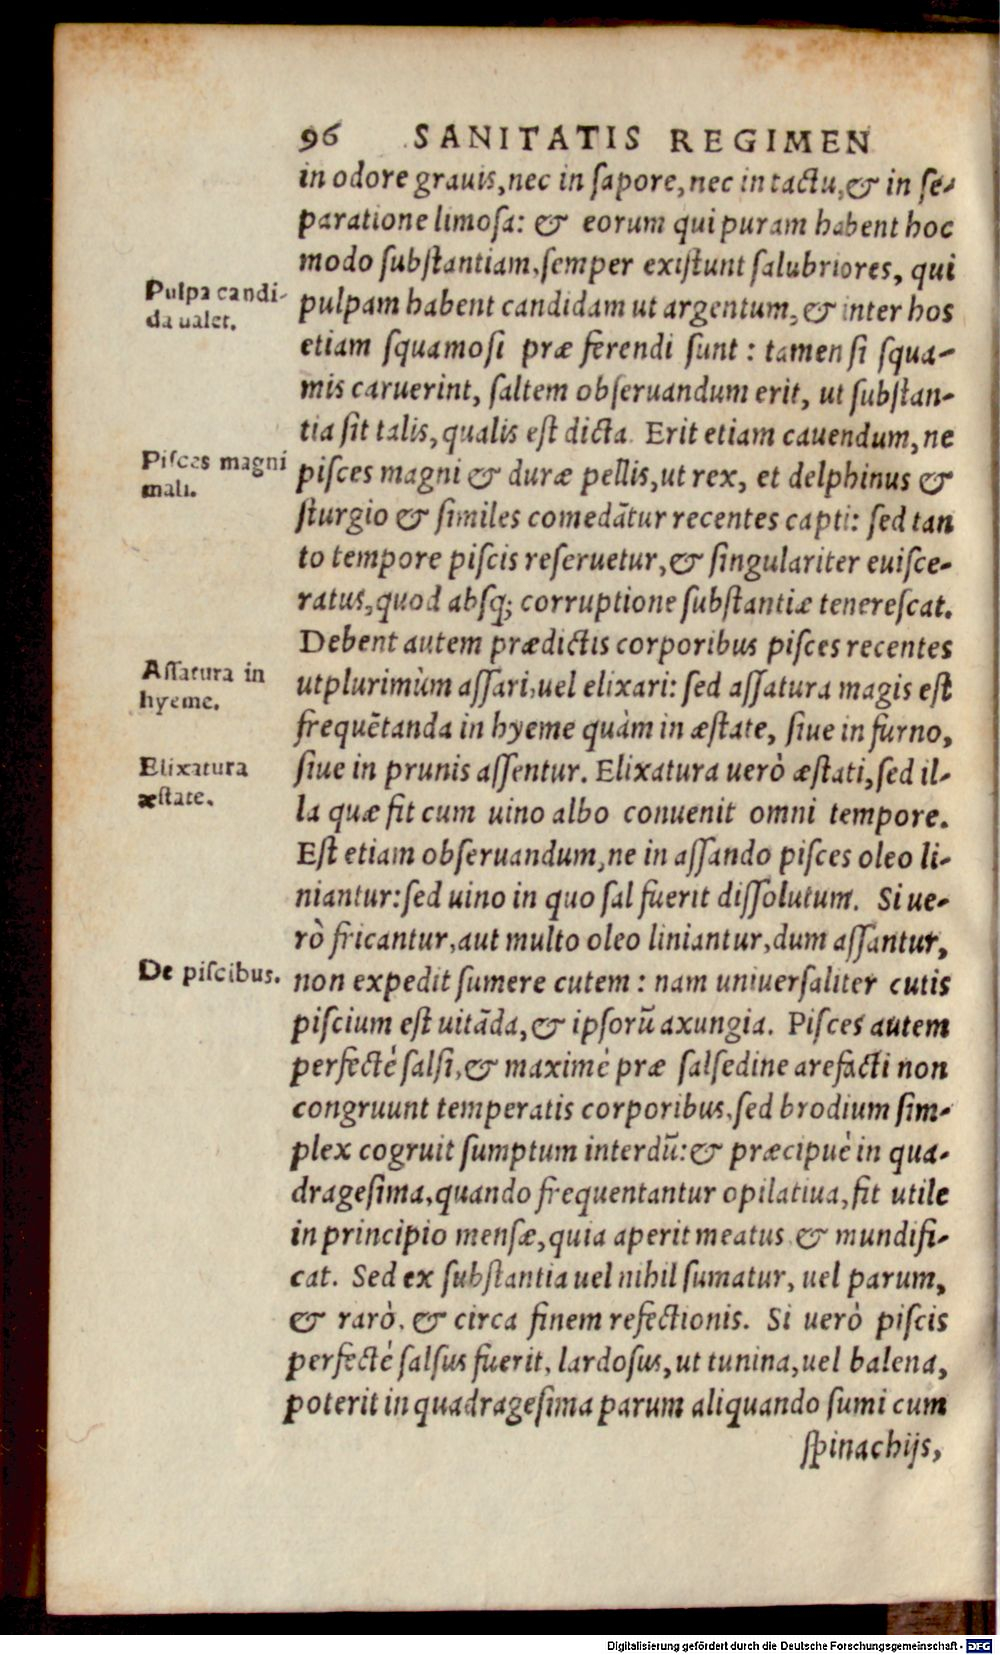 96 SANITATIS REGIMEN
in odore grauis, nec in sapore, nec in tactu, & in se-
paratione limosa: & eorum qui puram habent hoc
modo substantiam, semper existunt salubriores, qui
Pulpa candi-
da ualet.
pulpam habent candidam ut argentum, & inter hos
etiam squamosi præ ferendi sunt: tamen si squa-
mis caruerint, saltem obseruandum erit, ut substan-
tia sit talis, qualis est dicta. Erit etiam cauendum, ne
Pisces magni
mali.
pisces magni & duræ pellis, ut rex, et delphinus &
sturgio & similes comedãtur recentes capti: sed tan
to tempore piscis reseruetur, & singulariter euisce-
ratus, quod absq; corruptione substantiæ tenerescat.
Debent autem prædictis corporibus pisces recentes
Assatura in
hyeme.
utplurimùm assari, uel elixari: sed assatura magis est
frequẽtanda in hyeme quàm in æstate, siue in furno,
Elixatura
æstate.
siue in prunis assentur. Elixatura uerò æstati, sed il-
la quæ fit cum uino albo conuenit omni tempore.
Est etiam obseruandum, ne in assando pisces oleo li-
niantur: sed uino in quo sal fuerit dissolutum. Si ue-
rò fricantur, aut multo oleo liniantur, dum assantur,
De piscibus.
non expedit sumere cutem: nam uniuersaliter cutis
piscium est uitãda, & ipsorũ axungia. Pisces autem
perfectè salsi, & maximè præ salsedine arefacti non
congruunt temperatis corporibus, sed brodium sim-
plex cogruit sumptum interdũ: & præcipuè in qua-
dragesima, quando frequentantur opilatiua, fit utile
in principio mensæ, quia aperit meatus & mundifi-
cat. Sed ex substantia uel nihil sumatur, uel parum,
& rarò, & circa finem refectionis. Si uerò piscis
perfectè salsus fuerit, lardosus, ut tunina, uel balena,
poterit in quadragesima parum aliquando sumi cum
spinachijs,
Digitalisierung gefördert durch die Deutsche Forschungsgemeinschaft - DFG